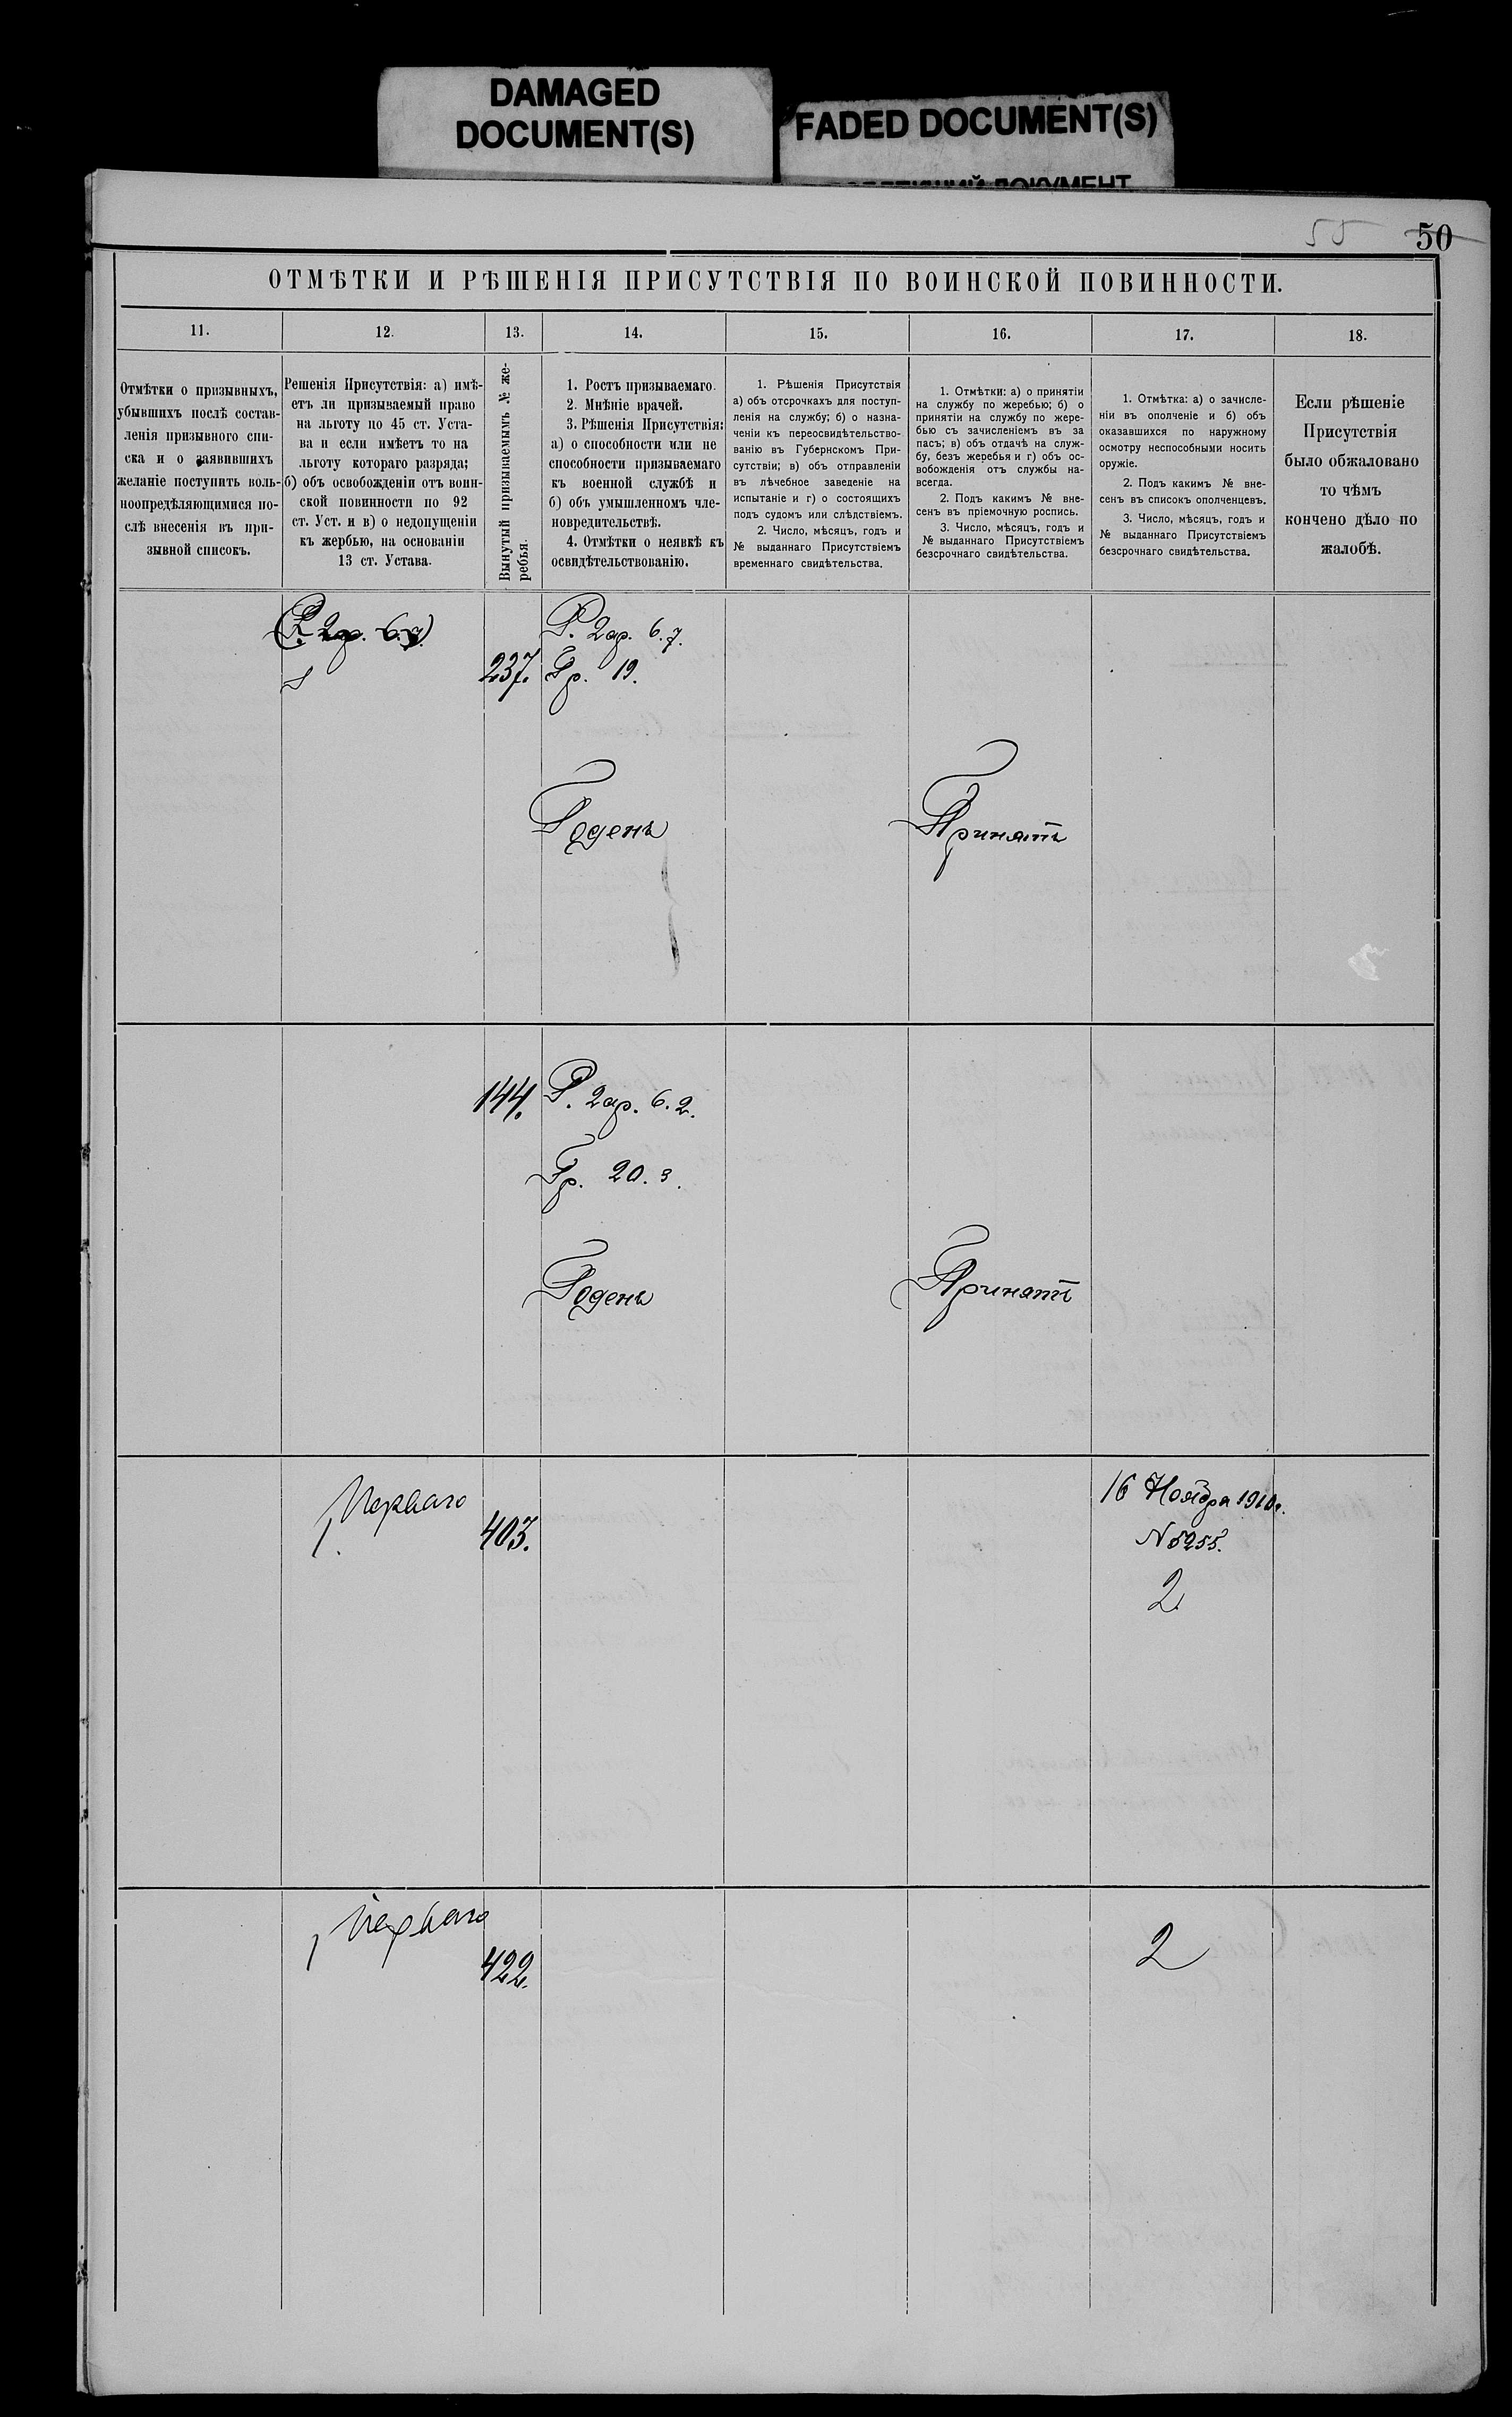 DAMAGED
DOCUMENT(S)
FADED DOCUMENT(S)
ДОКУМЕНТ
55 50
ОТМѢТКИ И РѢШЕНІЯ ПРИСУТСТВІЯ ПО ВОИНСКОЙ ПОВИННОСТИ.
11.
12.
13.
14.
15.
16.
17.
18.
Отмѣтки о призывныхъ,
убывшихъ послѣ состав-
ленія призывного спи-
ска и о заявившихъ
желаніе поступить воль-
ноопредѣляющимися по-
слѣ внесенія въ при-
зывной списокъ.
Решенія Присутствія: а) имѣ-
етъ ли призываемый право
на льготу по 45 ст. Уста-
ва и если имѣетъ то на
льготу котораго разряда;
б) объ освобожденіи отъ воин-
ской повинности по 92
ст. Уст. и в) о недопущеніи
къ жербью, на основаніи
13 ст. Устава.
Вынутый призываемымъ № же-
ребья.
1. Ростъ призываемаго.
2. Мнѣніе врачей.
3. Рѣшенія Присутствія:
а) о способности или не
способности призываемаго
къ военной службѣ и
б) объ умышленномъ чле-
новредительствѣ.
4. Отмѣтки о неявкѣ къ
освидѣтельствованію.
1. Рѣшенія Присутствія
а) объ отсрочкахъ для поступ-
ленія на службу; б) о назна-
ченіи къ переосвидѣтельство-
ванію въ Губернскомъ При-
сутствіи; в) объ отправленіи
въ лѣчебное заведеніе на
испытаніе и г) о состоящихъ
подъ судомъ или слѣдствіемъ.
2. Число, мѣсяцъ, годъ и
№ выданнаго Присутствіемъ
временнаго свидѣтельства.
1. Отмѣтки: а) о принятіи
на службу по жеребью; б) о
принятіи на службу по жере-
бью съ зачисленіемъ въ за
пасъ; в) объ отдачѣ на служ-
бу, безъ жеребья и г) объ ос-
вобожденія отъ службы на-
всегда.
2. Подъ какимъ № вне-
сенъ въ пріемочную роспись.
3. Число, мѣсяцъ, годъ и
№ выданнаго Присутствіемъ
безсрочнаго свидѣтельства.
1. Отмѣтка: а) о зачисле-
ніи въ ополченіе и б) объ
оказавшихся по наружному
осмотру неспособными носить
оружіе.
2. Подъ какимъ № вне-
сенъ въ списокъ ополченцевъ.
3. Число, мѣсяцъ, годъ и
№ выданнаго Присутствіемъ
безсрочнаго свидѣтельства.
Если рѣшеніе
Присутствія
было обжаловано
то чѣмъ
кончено дѣло по
жалобѣ.
(Р. 2ар. 6.7)
237.
Р. 2ар. 6.7.
Гр. 19.
Годенъ
Принятъ
144.
Р. 2ар. 6.2.
Гр. 20.3.
Годенъ
Принятъ
Перваго
403.
16 Ноября 1910г.
N 5255.
2
Перваго
422.
2